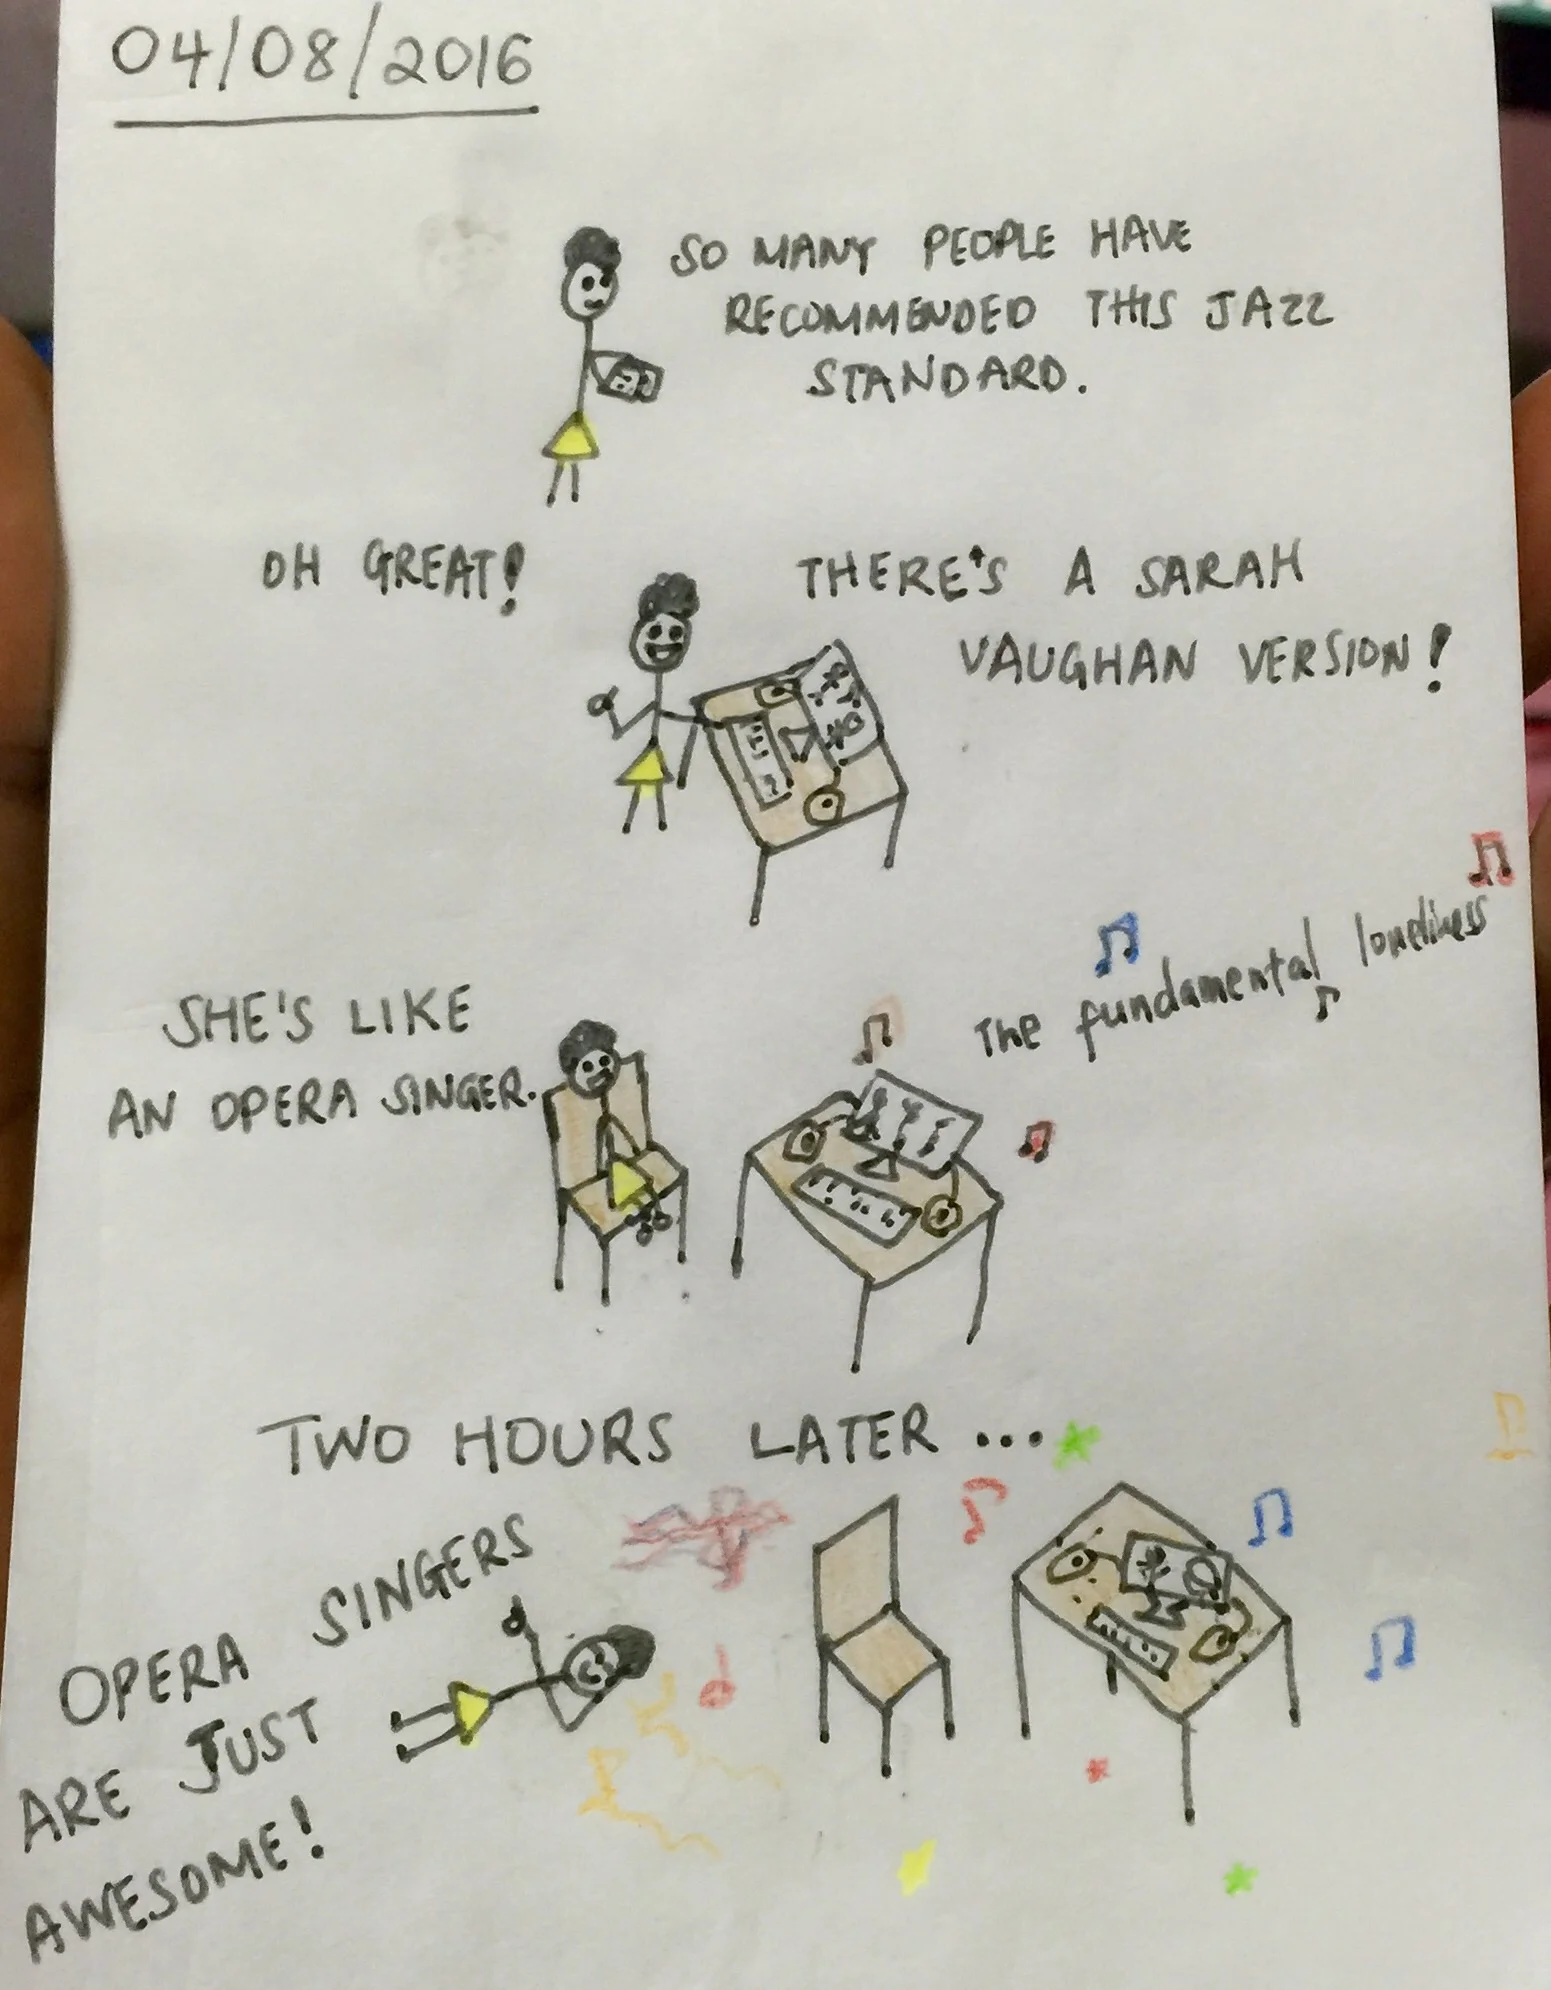 04/08/2016
SO MANY PEOPLE HAVE
RECOMMENDED THIS JAZZ
STANDARD.
OH GREAT!
THERE'S A SARAH
VAUGHAN VERSION!
SHE'S LIKE
AN OPERA SINGER.
The fundamental loneliness
TWO HOURS LATER...
OPERA SINGERS
ARE JUST
AWESOME!